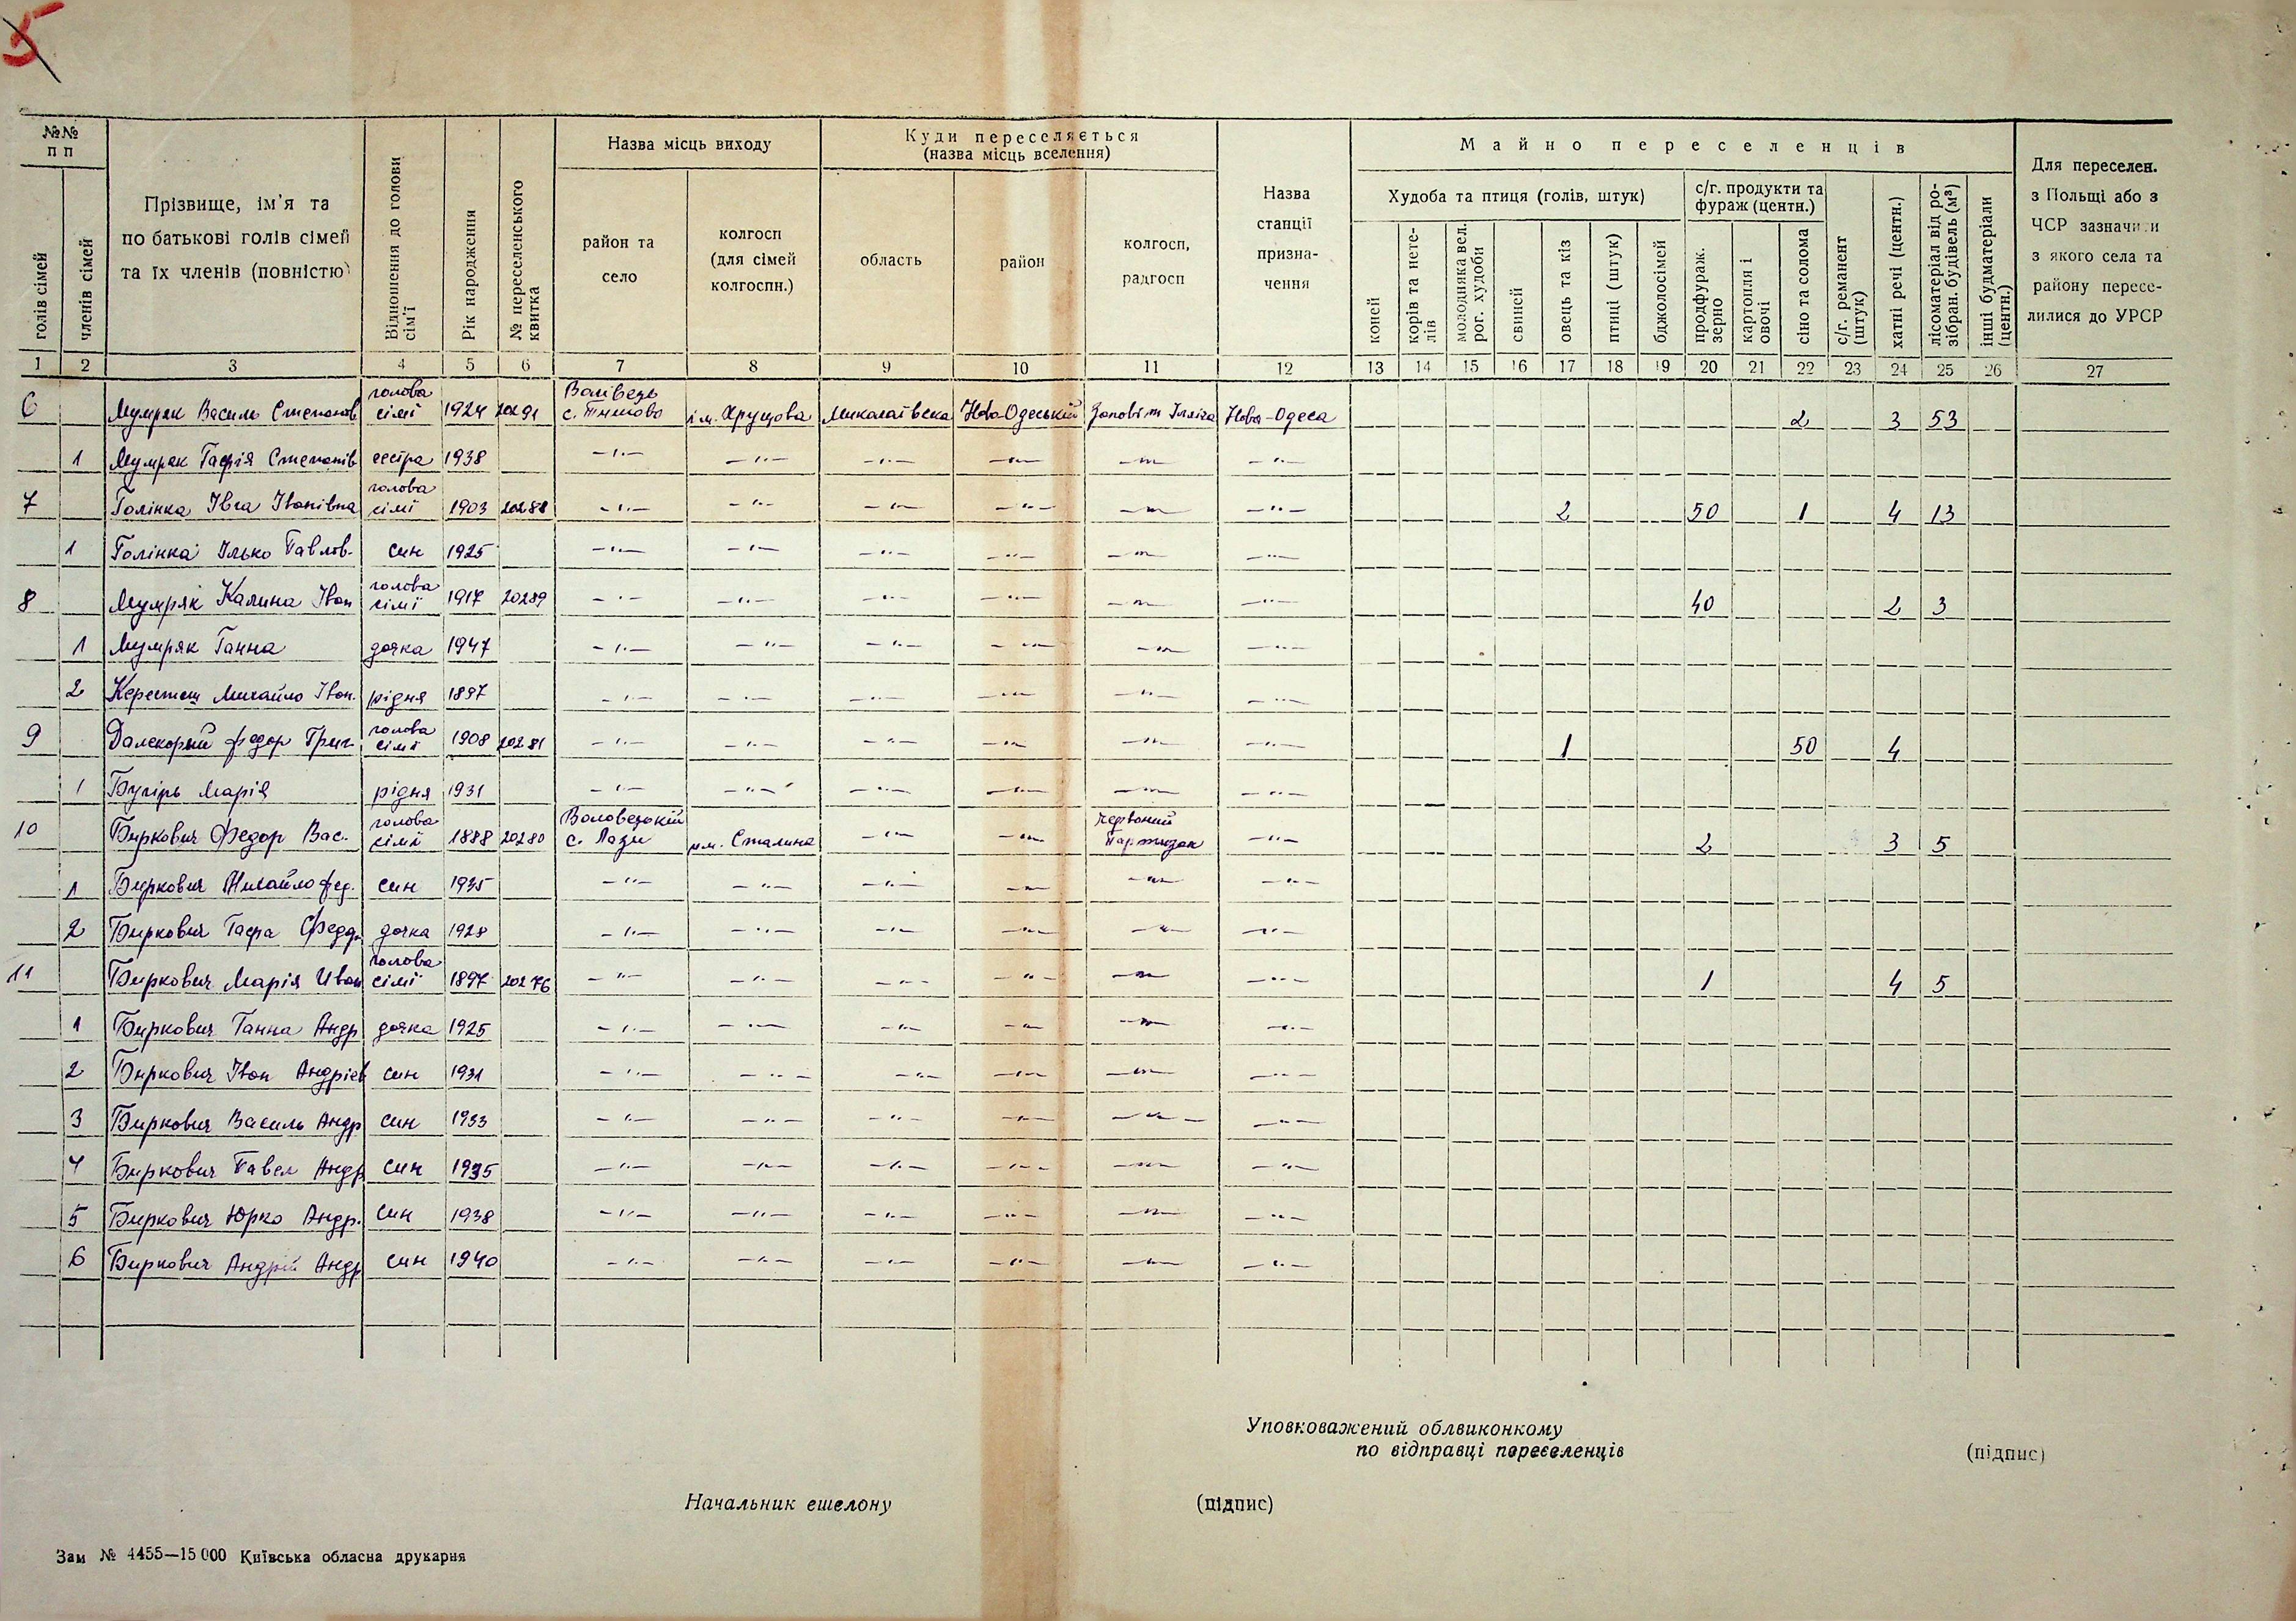 5
№№ п п
голів сімей
членів сімей
Прізвище, ім'я та по батькові голів сімей та їх членів (повністю)
Відношення до голови сім'ї
Рік народження
№ переселенського квитка
Назва місць виходу
район та село
колгосп (для сімей колгоспн.)
Куди переселяється (назва місць вселення)
область
район
колгосп, радгосп
Назва станції призна-чення
Майно переселенців
Худоба та птиця (голів, штук)
коней
корів та нете-лів
молодняка вел. рог. худоби
свиней
овець та кіз
птиці (штук)
бджолосімей
с/г. продукти та фураж (центн.)
продфураж. зерно
картопля і овочі
сіно та солома
с/г. реманент (штук)
хатні речі (центн.)
лісоматеріал від ро-зібран. будівель (м³)
інші будматеріали (центн.)
Для переселен. з Польщі або з ЧСР зазначити з якого села та району пересе-лилися до УРСР
1 2 3 4 5 6 7 8 9 10 11 12 13 14 15 16 17 18 19 20 21 22 23 24 25 26 27
6 Мумряк Василь Степанов голова сімї 1924 20291 с. Тишово ім. Хрущова Миколаївска Ново-Одеський Заповіт Ілліча Ново-Одеса 2 3 53
1 Мумряк Гафія Степанів сестра 1938 -"- -"- -"- -"- -"- -"-
7 Голінка Івга Іванівна голова сімї 1903 20288 -"- -"- -"- -"- -"- -"- 2 50 1 4 13
1 Голінка Ілько Павлов. син 1925 -"- -"- -"- -"- -"- -"-
8 Мумряк Калина Іван голова сімї 1917 20289 -"- -"- -"- -"- -"- -"- 40 2 3
1 Мумряк Ганна дочка 1947 -"- -"- -"- -"- -"- -"-
2 Михайло Іван. рідня 1897 -"- -"- -"- -"- -"- -"-
9 Далекорей Федор Григ. голова сімї 1908 20281 -"- -"- -"- -"- -"- -"- 1 50 4
1 Марія рідня 1931 -"- -"- -"- -"- -"- -"-
10 Биркович Федор Вас. голова сімї 1888 20280 Воловецький с. Лази им. Сталина -"- -"- Червоний Партизан -"- 2 3 5
1 Биркович Михайло Фед. син 1935 -"- -"- -"- -"- -"- -"-
2 Биркович Гафа Федор. дочка 1928 -"- -"- -"- -"- -"- -"-
11 Биркович Марія Иван голова сімї 1897 20276 -"- -"- -"- -"- -"- -"- 1 4 5
1 Биркович Ганна Андр дочка 1925 -"- -"- -"- -"- -"- -"-
2 Биркович Іван Андріев син 1931 -"- -"- -"- -"- -"- -"-
3 Биркович Василь Андр син 1933 -"- -"- -"- -"- -"- -"-
4 Биркович Павел Андр син 1935 -"- -"- -"- -"- -"- -"-
5 Биркович Юрко Андр. син 1938 -"- -"- -"- -"- -"- -"-
6 Биркович Андрій Андр син 1940 -"- -"- -"- -"- -"- -"-
Уповковажений облвиконкому
по відправці переселенців (підпис)
Начальник ешелону (підпис)
Зам № 4455—15 000 Київська обласна друкарня